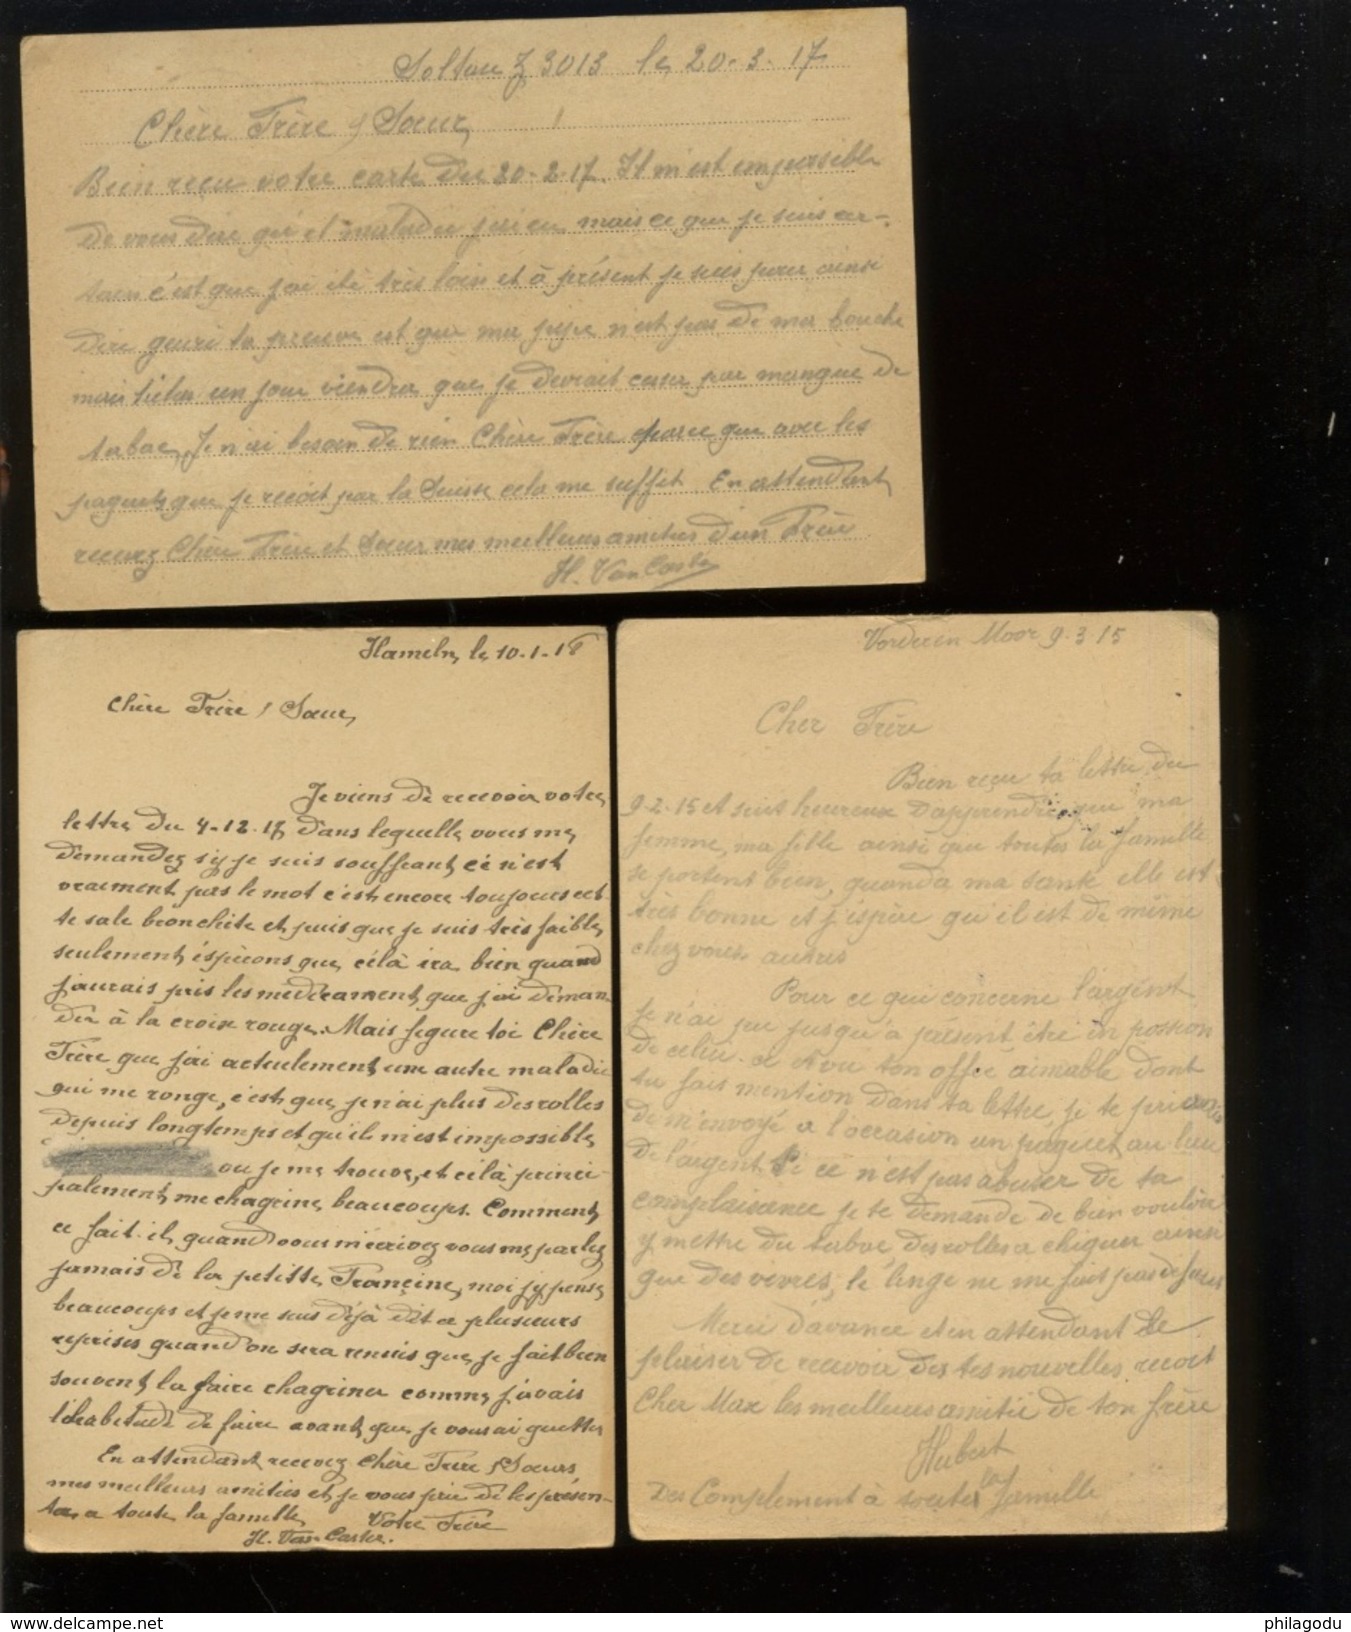 Soltau Z 3013 le 20-3-17
Chère Frère & Sœur,
Bien reçu votre carte du 20-2-17. Il m'est impossible
de vous dire qu'el maladie j'ai eu mais ce que je suis cer-
tain c'est que j'ai été très loin et à présent je suis pour ainsi
dire gueuri la preuve est que ma pipe n'est pas de ma bouche
mais hélas un jour viendra que je devrait cesser par mangue de
tabac, Je n'ai besoin de rien Chère Frère parce que avec les
paquets que je recoit par la Suisse cela me suffit. En attendant
recevez Chère Frère et Sœur mes meilleurs amitiés d'un Frère
H. Van Caste
Hameln, le 10-1-18
Chère Frère / Sœur,
Je viens de recevoir votre
lettre du 4-12-17 dans lequelle vous me
demandez s'y je suis souffrant, ce n'est
vraiment pas le mot c'est encore toujours cet-
te sale bronchite et puis que je suis très faible,
seulement éspèrons que célà ira bien quand
j'aurais pris les medicament que j'ai deman-
der à la croix rouge. Mais figure toi Chère
Frère que j'ai actuelement une autre maladie
qui me ronge, c'est que je n'ai plus des rolles
depuis longtemps et qu'il m'est impossible
ou je me trouve, et célà princi-
palement me chagrine beaucoups. Comment
ce fait-il quand vous m'écrivez vous me parlez
jamais de la petitte Françine, moi j'y pense
beaucoups et je me suis déjà dit a plusieurs
reprises quand on sera reunis que je fait bien
souvent la faire chagriner comme j'avais
l'habitude de faire avant que je vous ai quitter
En attendant recevez Chère Frère & Sœurs
mes meilleurs amitiés et je vous prie de les présen-
ter a toute la famille Votre Frère
H. Van Caste.
Vorderen Moor 9-3-15
Cher Frère
Bien reçu ta lettre du
9-2-15 et suit heureux d'apprendre que ma
femme, ma fille ainsi que toutes la famille
se portent bien, quand a ma santé elle est
très bonne et j'éspère qu'il est de même
chez vous autres
Pour ce qui concerne l'argent
je n'ai pu jusqu'a présent être en possion
de celui-ci et vu ton offre aimable dont
tu fais mention dans ta lettre, je te prierais
de m'envoyé a l'occasion un paquet au lieu
de l'argent. Si ce n'est pas abuser de ta
complaisance je te demande de bien vouloir
y mettre du tabac des rolles a chiquer ainsi
que des vivres, le linge ne me fait pas défaut
Merci d'avance et en attendant le
plaiser de recevoir des tes nouvelles recoit
Cher Max les meilleurs amitié de ton frère
Hubert
Des Complement à toutes la famille
philagodu
www.delcampe.net